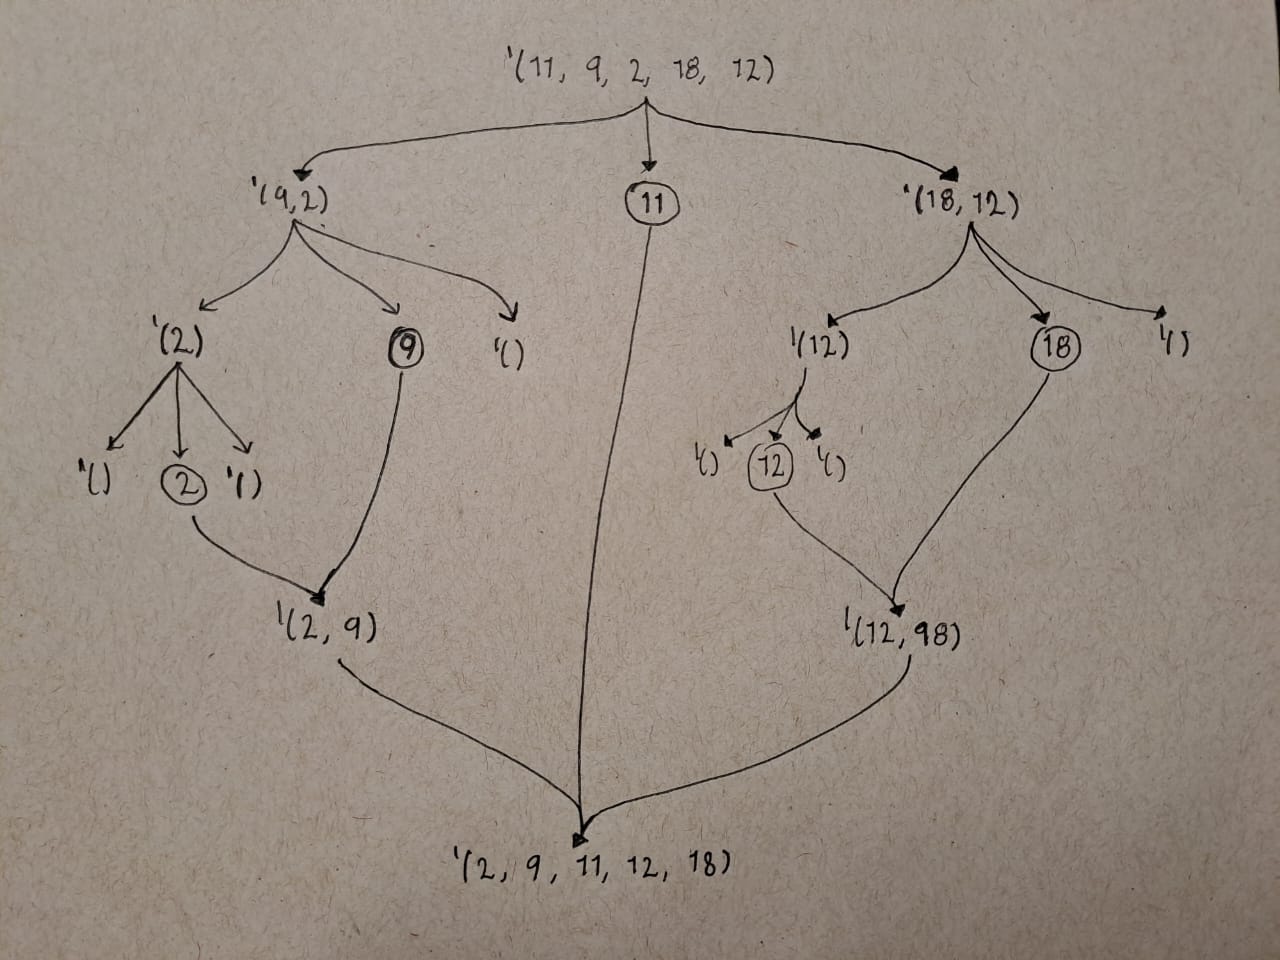 '(11, 9, 2, 18, 12)
'(9,2) 11 '(18, 12)
'(2) 9 '() '(12) 18 '()
'() 2 '() '() 12 '()
'(2, 9) '(12, 98)
'(2, 9, 11, 12, 18)